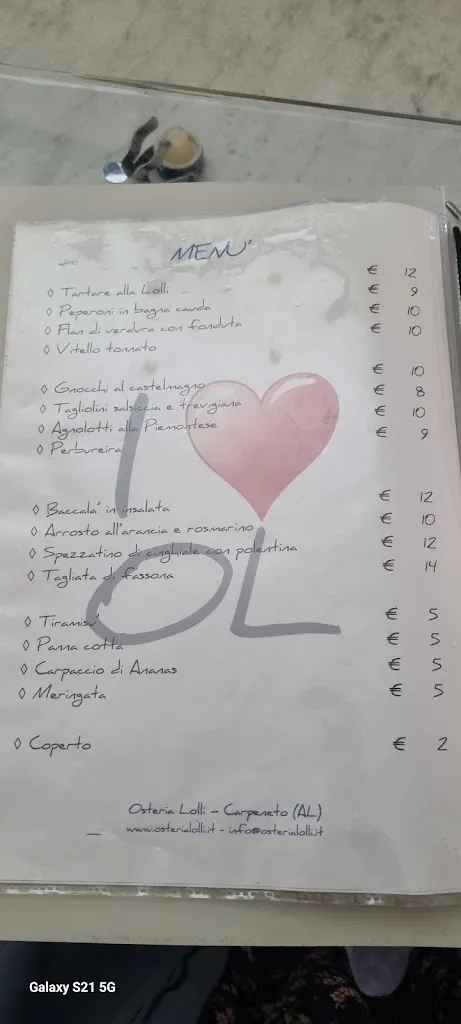 MENU'
◊ Tartare alla Lolli € 12
◊ Peperoni in bagna cauda € 9
◊ Flan di verdura con fonduta € 10
◊ Vitello tonnato € 10
◊ Gnocchi al castelmagno € 10
◊ Tagliolini salsiccia e trevigiana € 8
◊ Agnolotti alla Piemontese € 10
◊ Perbureira € 9
◊ Baccala' in insalata € 12
◊ Arrosto all'arancia e rosmarino € 10
◊ Spezzatino di cinghiale con polentina € 12
◊ Tagliata di fassona € 14
◊ Tiramisu' € 5
◊ Panna cotta € 5
◊ Carpaccio di Ananas € 5
◊ Meringata € 5
◊ Coperto € 2
I
OL
Osteria Lolli - Carpeneto (AL)
www.osterialolli.it - info@osterialolli.it
Galaxy S21 5G